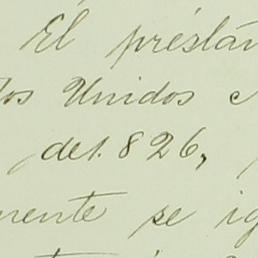 El présta
os Unidos
de 1.826,
mente se ig